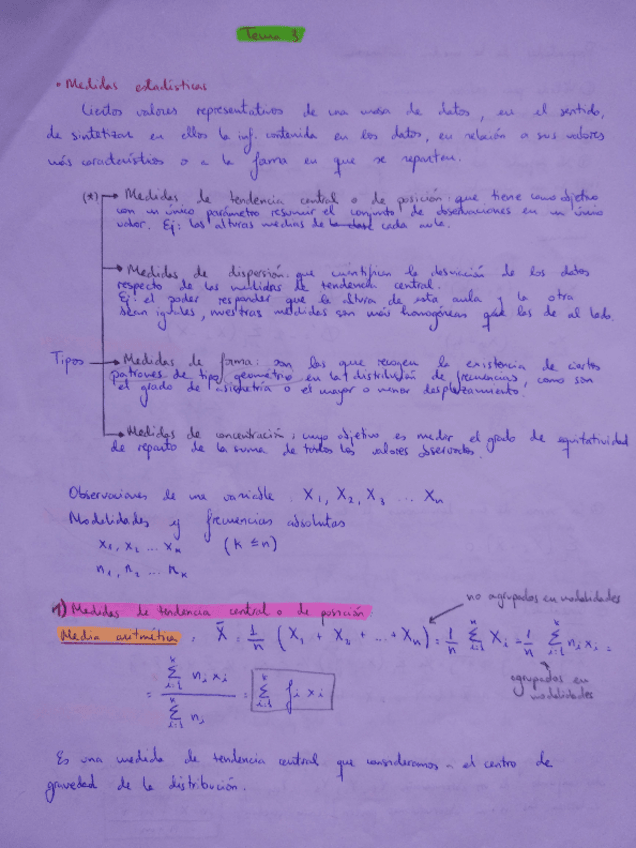 Tema 3
• Medidas estadísticas
Ciertos valores representativos de una masa de datos, en el sentido,
de sintetizar en ellos la inf. contenida en los datos, en relación a sus valores
más característicos o a la forma en que se reparten.
(*) → Medidas de tendencia central o de posición: que tiene como objetivo
con un único parámetro resumir el conjunto de observaciones en un único
valor. Ej: las alturas medias de la clase cada aula.
→ Medidas de dispersión: que cuantifican la desviación de los datos
respecto de las medidas de tendencia central.
Ej: el poder responder que la altura de esta aula y la otra
sean iguales, nuestras medidas son más homogéneas que las de al lado.
Tipos → Medidas de forma: son las que recogen la existencia de ciertos
patrones de tipo geométrico en la distribución de frecuencias, como son
el grado de asimetría o el mayor o menor desplazamiento.
→ Medidas de concentración: cuyo objetivo es medir el grado de equitatividad
de reparto de la suma de todos los valores observados.
Observaciones de una variable X₁, X₂, X₃ ... Xₙ
Modalidades y frecuencias absolutas
x₁, x₂ ... xₖ (k ≤ n)
n₁, n₂ ... nₖ
no agrupados en modalidades
1) Medidas de tendencia central o de posición
Media aritmética: X̄ = 1/n (X₁ + X₂ + ... + Xₙ) = 1/n Σ Xᵢ = 1/n Σ nᵢ xᵢ =
agrupados en modalidades
= Σ nᵢ xᵢ / Σ nᵢ = Σ fᵢ xᵢ
Es una medida de tendencia central que consideramos el centro de
gravedad de la distribución.